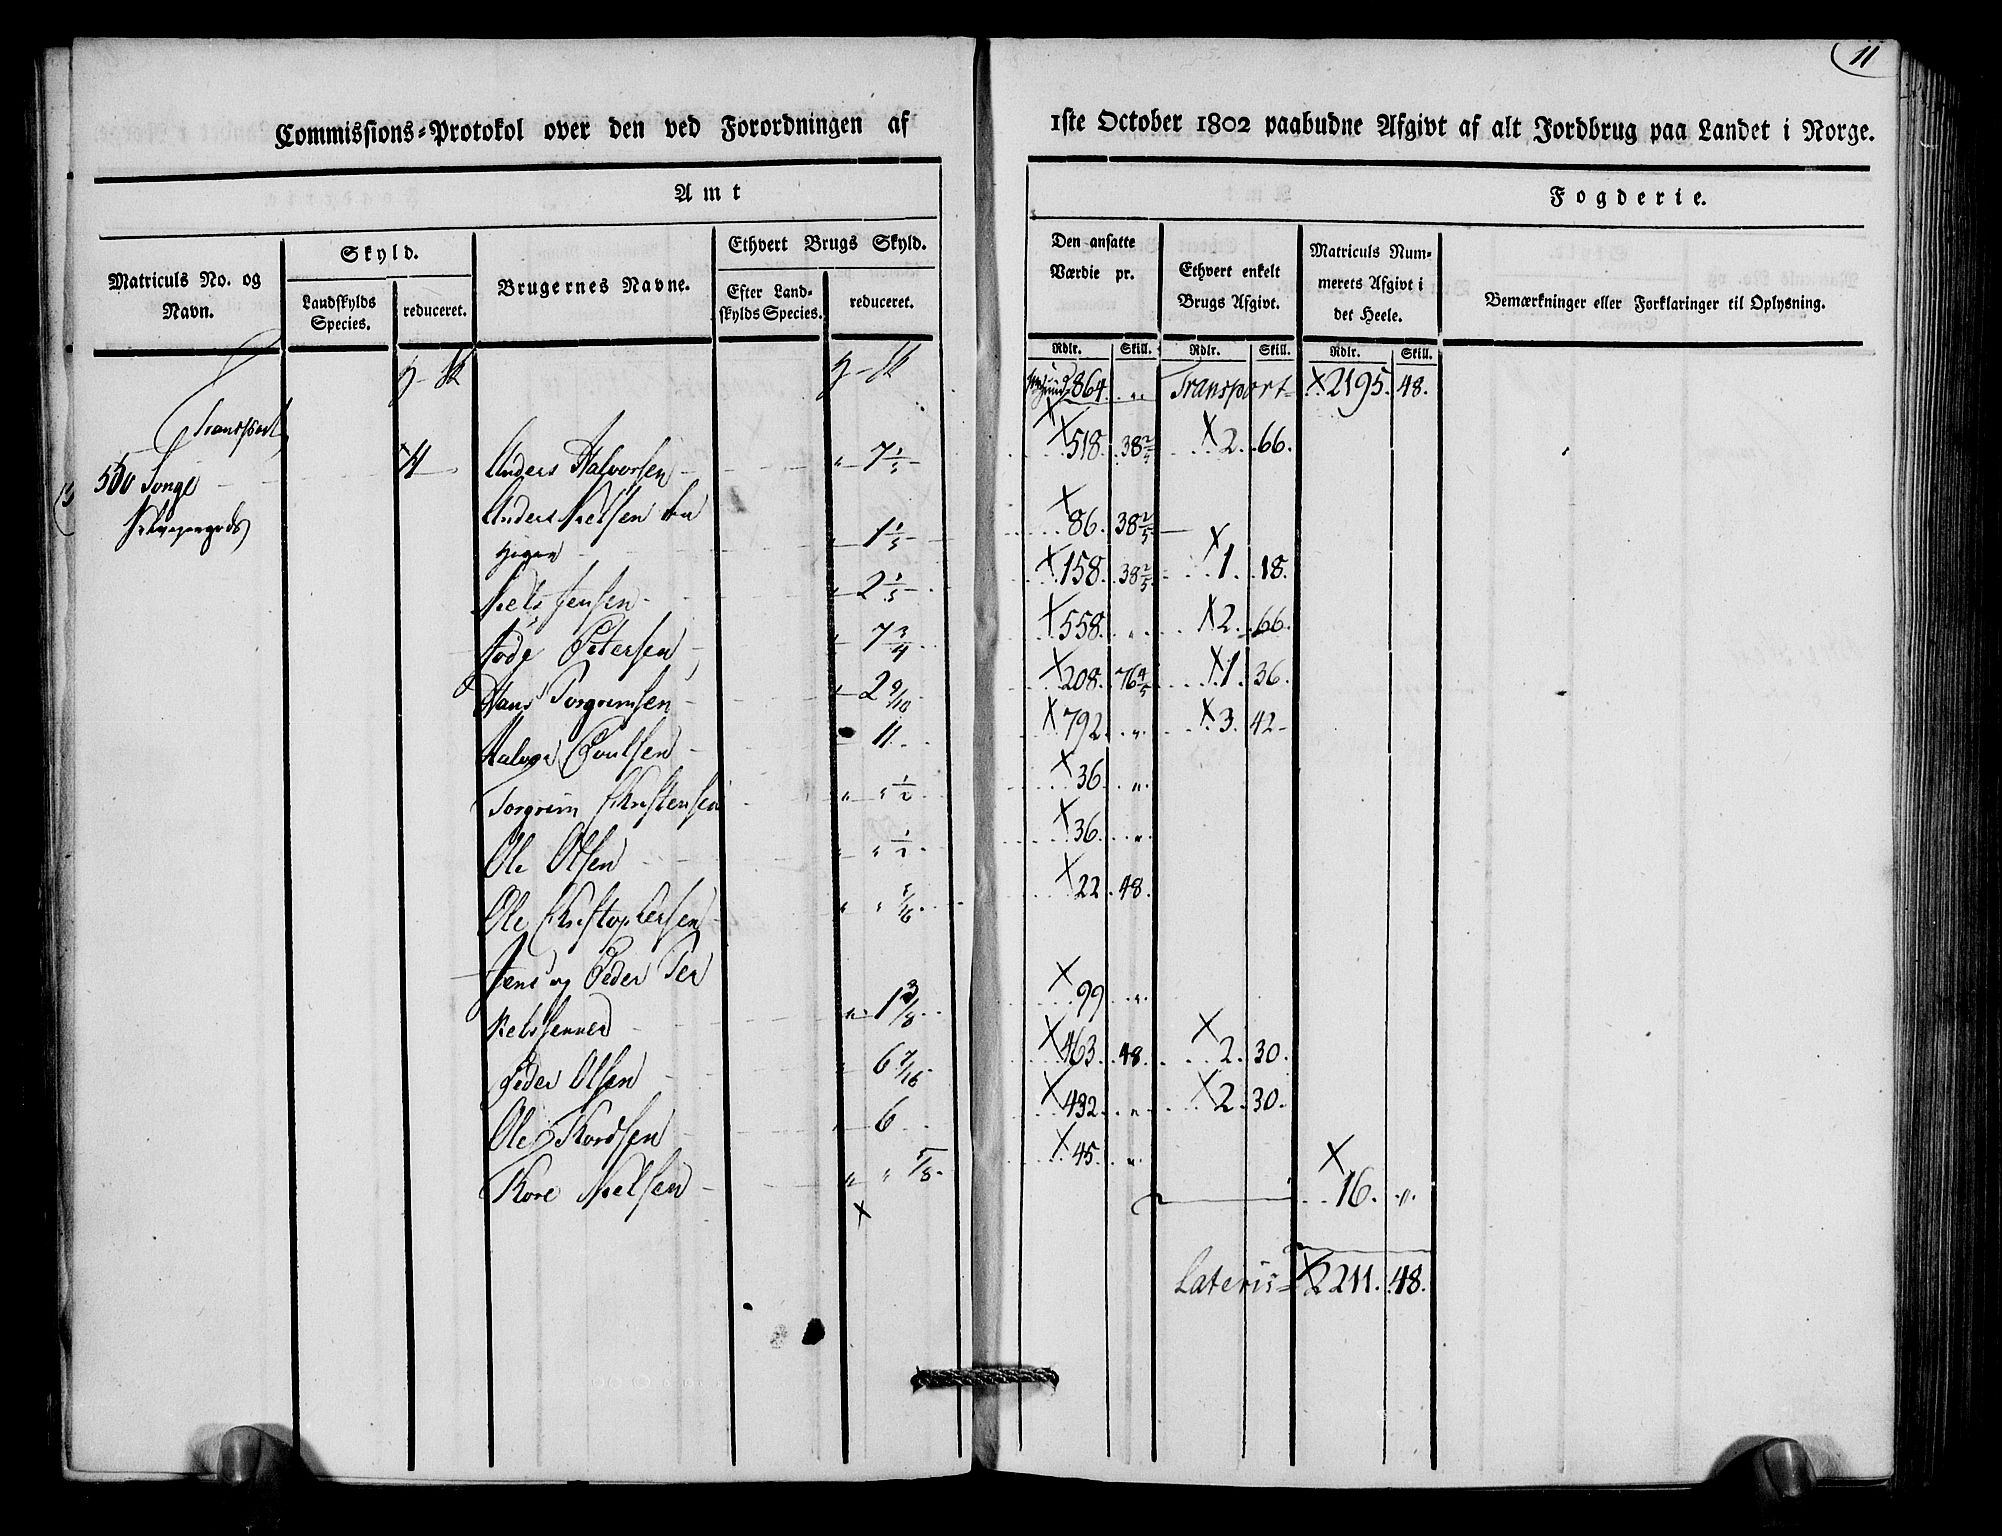 11
Commissions-Protokol over den ved Forordningen af
1ste October 1802 paabudne Afgivt af alt Jordbrug paa Landet i Norge.
Amt
Fogderie.
Matriculs No. og Navn.
Skyld.
Landskylds Species.
reduceret.
Brugernes Navne.
Ethvert Brugs Skyld.
Efter Landskylds Species.
reduceret.
Den ansatte Værdie pr.
Ethvert enkelt Brugs Afgivt.
Matriculs Nummerets Afgivt i det Heele.
Bemærkninger eller Forklaringer til Oplysning.
Rdlr. Skill. Rdlr. Skill. Rdlr. Skill.
864 " Transport X 2195. 48.
Transport
Songe Anders Halvorsen " 7 1/5 X 518. 38 2/5 X 2. 66.
Anders Nielsen
" 1 1/5 X 86. 38 2/5
Niels Jensen " 2 1/5 X 158. 38 2/5 X 1. 18.
Petersen " 7 3/4 X 558. " X 2. 66.
Hans Torgrimsen " 2 9/10 X 208. 76 4/5 X 1. 36.
Poulsen 11 X 792. " X 3. 42
Torgrim Christensen " " 1/2 X 36 "
Ole Olsen " " 1/2 X 36. "
Ole Christophersen " " 5/16 X 22. 48.
Jens og Peder Ter
kelsenner " 1 3/8 X 99 "
Peder Olsen " 6 7/16 X 463. 48 X 2. 30.
Ole Tordsen " 6 X 432. " X 2. 30.
Tore Nielsen " " 5/8 X 45 "
X
X 16. "
Lateris X 2211. 48.